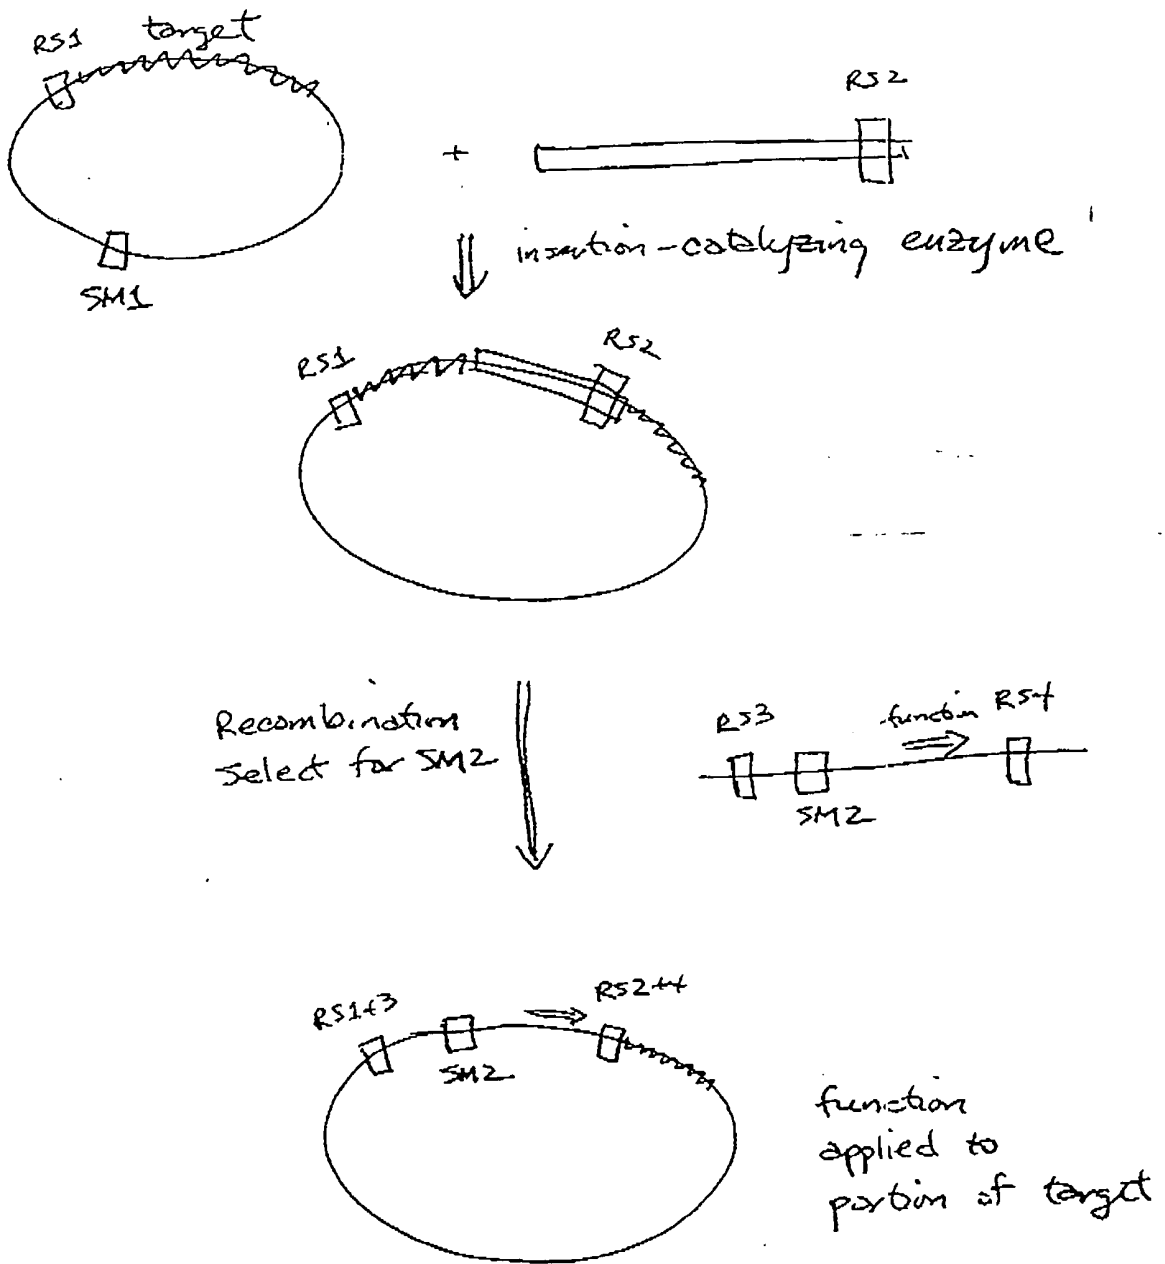 RS1
target
RS2
+
insertion-catalyzing enzyme
SM1
RS1
RS2
Recombination
Select for SM2
RS3
function
RS4
SM2
RS1+3
RS2+4
SM2
function
applied to
portion of target